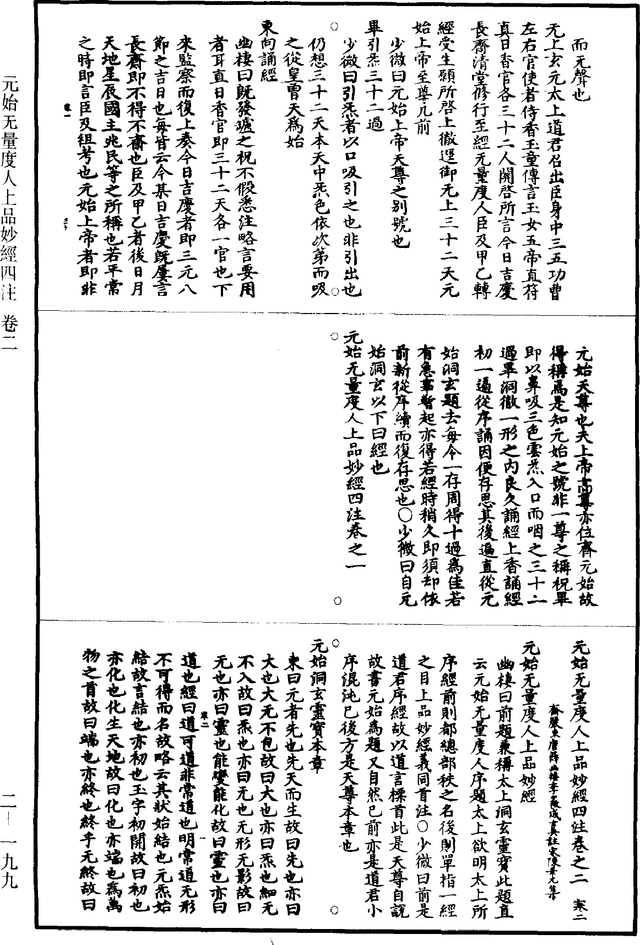 元始无量度人上品妙經四注 卷二
二—一九九
而无聲也
无上玄元太上道君召出臣身中三五功曹
左右官使者侍香玉童傳言玉女五帝直符
直日香官各三十二人關啓所言今日吉慶
長齋清堂修行至經无量度人臣及甲乙轉
經受生願所啓上徹遥御无上三十二天元
始上帝至尊几前
少微曰元始上帝天尊之別號也
畢引炁三十二過
少微曰引炁者以口吸引之也非引出也
仍想三十二天本天中炁色依次第而吸
之從皇曾天爲始
東向誦經
幽棲曰既發爐之祝不假悉注略言要用
者耳直日香官即三十二天各一官也下
來監察而復上奏今日吉慶者即三元八
節之吉日也每皆云今某日吉慶既屢言
長齋即不得不齋也臣及甲乙者後日月
天地星辰國主兆民等之所稱也若平常
之時即言臣及祖考也元始上帝者即非
元始天尊也天上帝高尊亦位齊元始故
得稱焉是知元始之號非一尊之稱祝畢
即以鼻吸三色雲炁入口而咽之三十二
過畢洞徹一形之内良久誦經上香誦經
初一過從序誦因便存思其後遍直從元
始洞玄題去每令一存周得十過爲佳若
有急事暫起亦得若經時稍久即須却依
前新從序續而復存思也○少微曰自元
始洞玄以下曰經也
元始无量度人上品妙經四注卷之一
元始无量度人上品妙經四注卷之二 寒二
齊嚴東唐薛幽棲李少微成玄英註宋陳景元集
元始无量度人上品妙經
幽棲曰前題兼構太上洞玄靈寶此題直
云元始无量度人序題太上欲明太上所
序經前則都總部秩之名後制單指一經
之目上品妙經義同首注○少微曰前是
道君序經故以道言標首此是天尊自説
故書元始爲題又自然已前亦是道君小
序混沌已後方是天尊本章也
元始洞玄靈寶本章
東曰元者先也先天而生故曰先也亦曰
大也大无不包故曰大也亦曰炁也細无
不入故曰炁也亦曰元也无形无影故曰
无也亦曰靈也能變能化故曰靈也亦曰
道也經曰道可道非常道也明常道无形
不可得而名故略云其狀始結也元炁始
結故言結也亦初也玉字初開故曰初也
亦化也化生天地故曰化也亦端也爲萬
物之首故曰端也亦終也終乎无終故曰